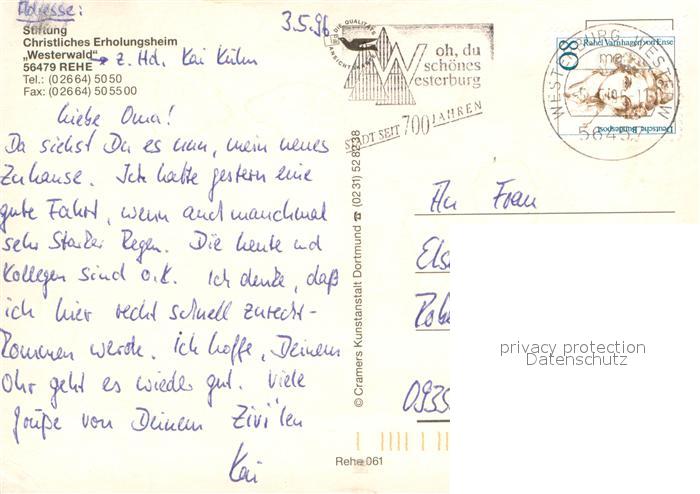 Adresse:
3.5.96
Stiftung
Christliches Erholungsheim
„Westerwald"
→ z. Hd. Kai Kühn
56479 REHE
Tel.: (0 26 64) 50 50
Fax: (0 26 64) 50 55 00
Liebe Oma!
Da siehst Du es nun, mein neues
Zuhause. Ich hatte gestern eine
gute Fahrt, wenn auch manchmal
sehr starker Regen. Die Leute und
Kollegen sind o.K. Ich denke, daß
ich hier recht schnell zurecht-
kommen werde. Ich hoffe, Deinem
Ohr geht es wieder gut. Viele
Grüße von Deinem Zivi'len
Kai
© Cramers Kunstanstalt Dortmund ☎ (0231) 528238
Rehe 061
DIE QUALITÄTS
ANSICHT
oh, du
schönes
Westerburg
STADT SEIT 700 JAHREN
WESTERBURG, WESTERW
56457
80
Rahel Varnhagen von Ense
Deutsche Bundespost
An Frau
Els
0935
privacy protection
Datenschutz